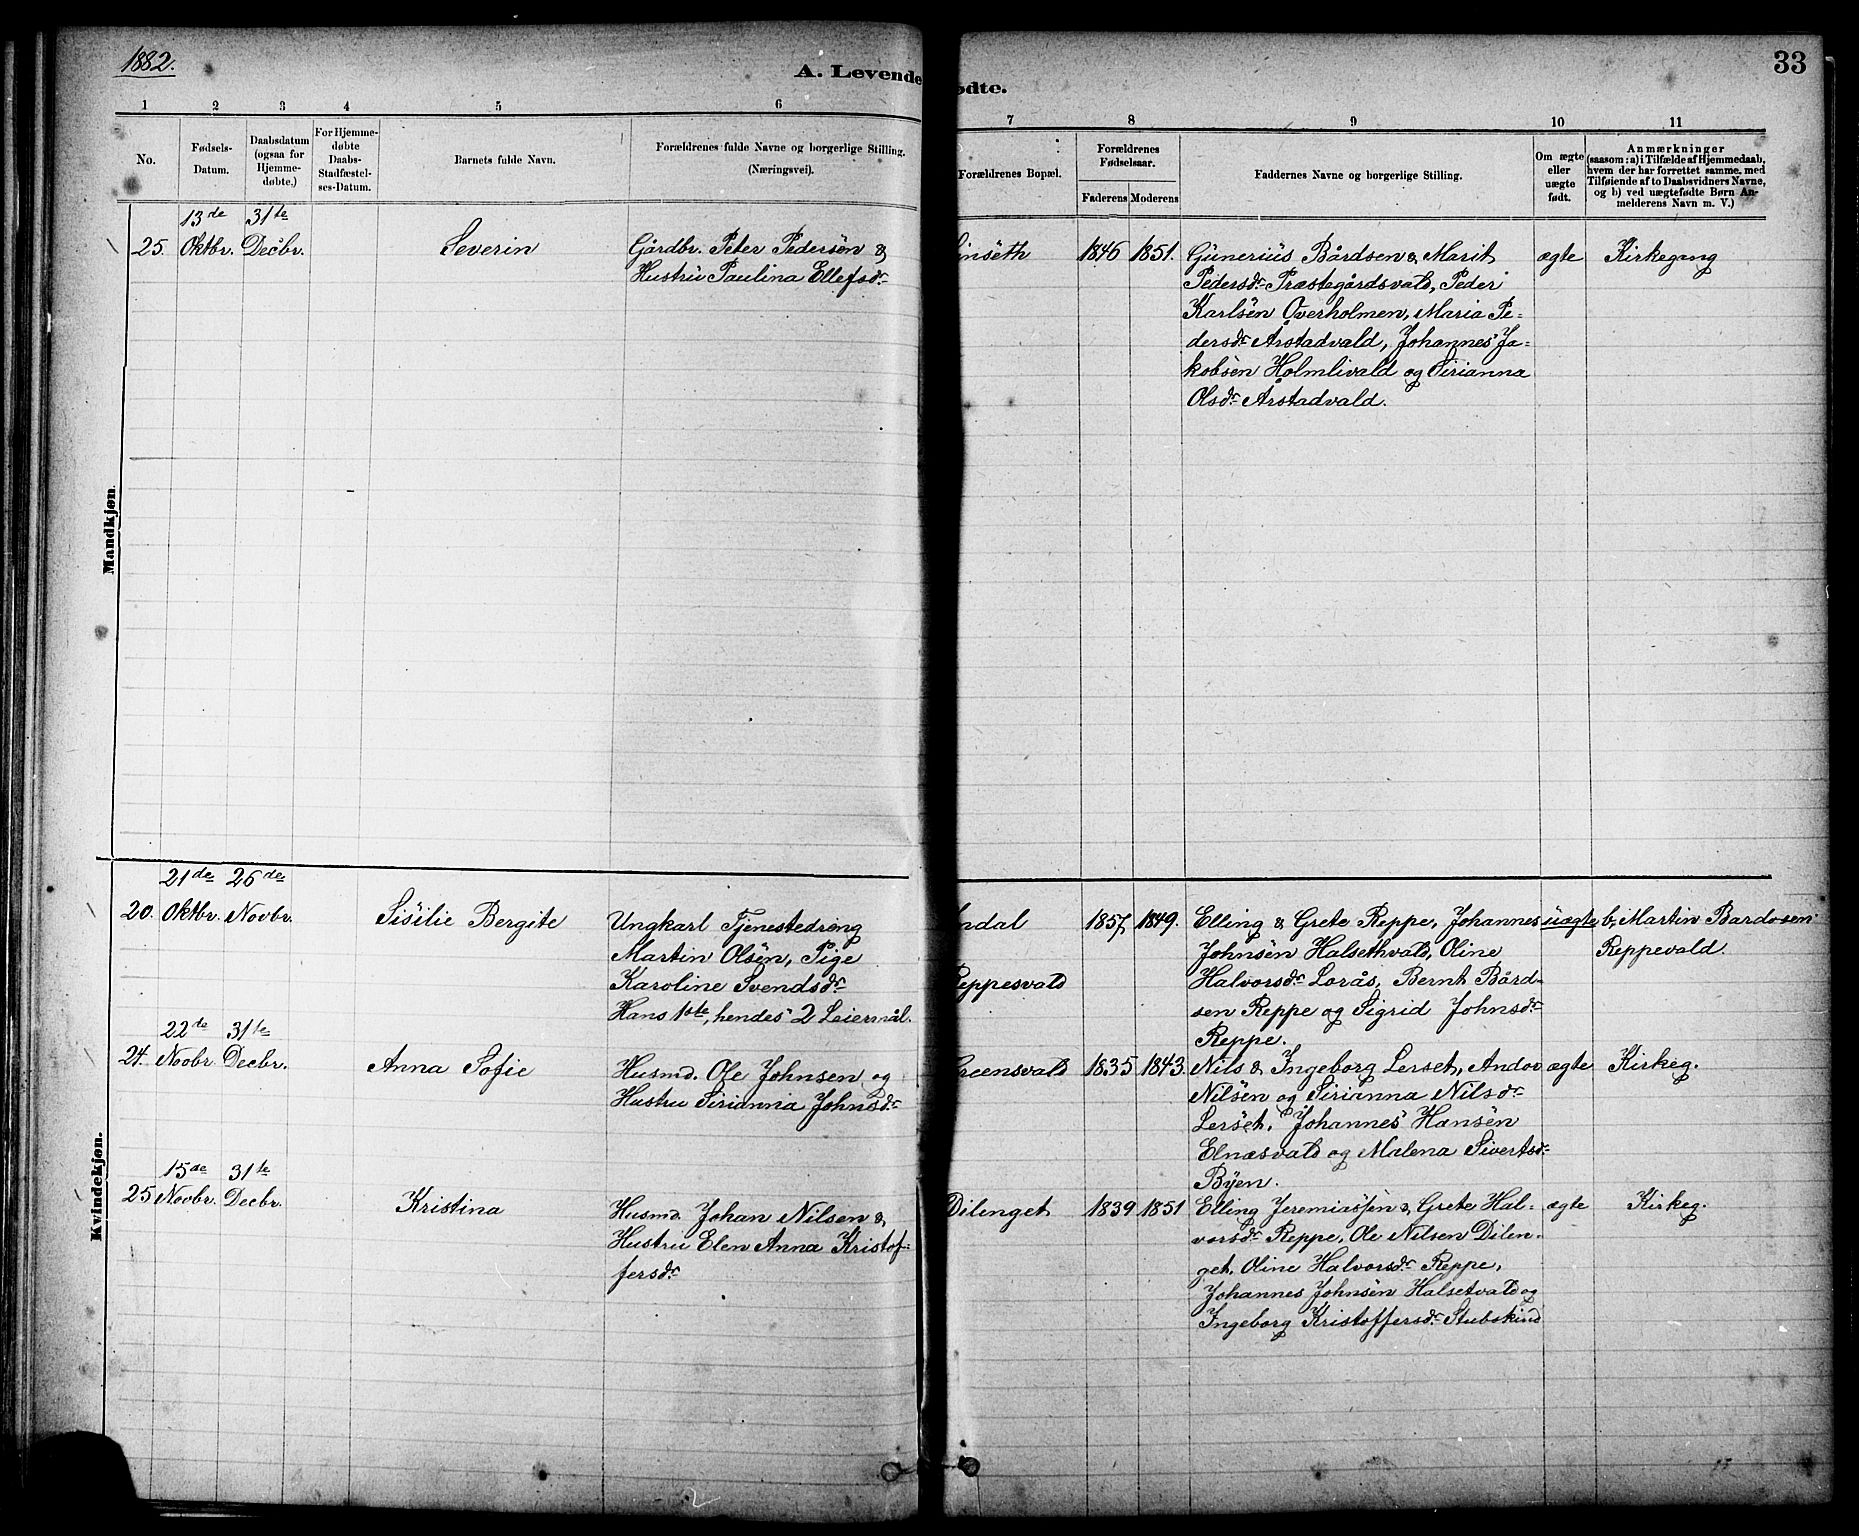 1882.
A. Levende
ødte.
33
1 2 3 4 5 6 7 8 9 10 11
No.
Fødsels-
Datum.
Daabsdatum
(ogsaa for
Hjemme-
døbte.)
For Hjemme-
døbte
Daabs-
Stadfæstel-
ses-Datum.
Barnets fulde Navn.
Forældrenes fulde Navne og borgerlige Stilling.
(Næringsvei).
Forældrenes Bopæl.
Forældrenes
Fødselsaar.
Faderens Moderens
Faddernes Navne og borgerlige Stilling.
Om ægte
eller
uægte
født.
Anmærkninger
(saasom: a) i Tilfælde af Hjemmedaab,
hvem der har forrettet samme, med
Tilføiende af to Daabsvidners Navne,
og b) ved uægtefødte Børn An-
melderens Navn m. V.)
Mandkjøn.
13de 31te
25. Oktbr. Decbr. Severin
Gårdbr. Peter Pedersen &
Hustru Paulina Ellefsdr.
inseth 1846 1851.
Gunerius Bårdsen & Marit
Pedersdr. Præstegårdsvald, Peder
Karlsen Överholmen, Maria Pe-
dersdr. Årstadvald, Johannes Ja-
kobsen Holmlivald og Sirianna
Olsdr. Årstadvald.
ægte Kirkegang
Kvindekjøn.
21de 26de
20. Oktbr. Novbr. Sisilie Bergite
Ungkarl Tjenestedreng
Martin Olsen, Pige
Karoline Svendsdr.
Hans 1ste, hendes 2 Leiermål.
ndal
eppesvald
1857 1849.
Elling & Grete Reppe, Johannes
Johnsen Halsethvald, Oline
Halvorsdr. Lorås, Bernt Bård-
sen Reppe og Sigrid Johnsdr.
Reppe.
uægte b, Martin Bardosen
Reppevald.
22de 31te
24. Novbr. Decbr. Anna Sofie
Husmd. Ole Johnsen og
Hustru Sirianna Johnsdr.
reensvald 1835 1843.
Nils & Ingeborg Lerset, Andor
Nilsen og Sirianna Nilsdr.
Lerset, Johannes Hansen
Elnæsvald og Malena Sivertsdr.
Byen.
ægte Kirkeg.
15de 31te
25 Novbr. Decbr. Kristina
Husmd. Johan Nilsen &
Hustru Elen Anna Kristof-
fersdr.
Dilenget 1839 1851
Elling Jeremiassen & Grete Hal-
vorsdr. Reppe, Ole Nilsen Dilen-
get, Oline Halvorsdr. Reppe,
Johannes Johnsen Halsetvald og
Ingeborg Kristoffersdr. Stubskind
ægte Kirkeg.